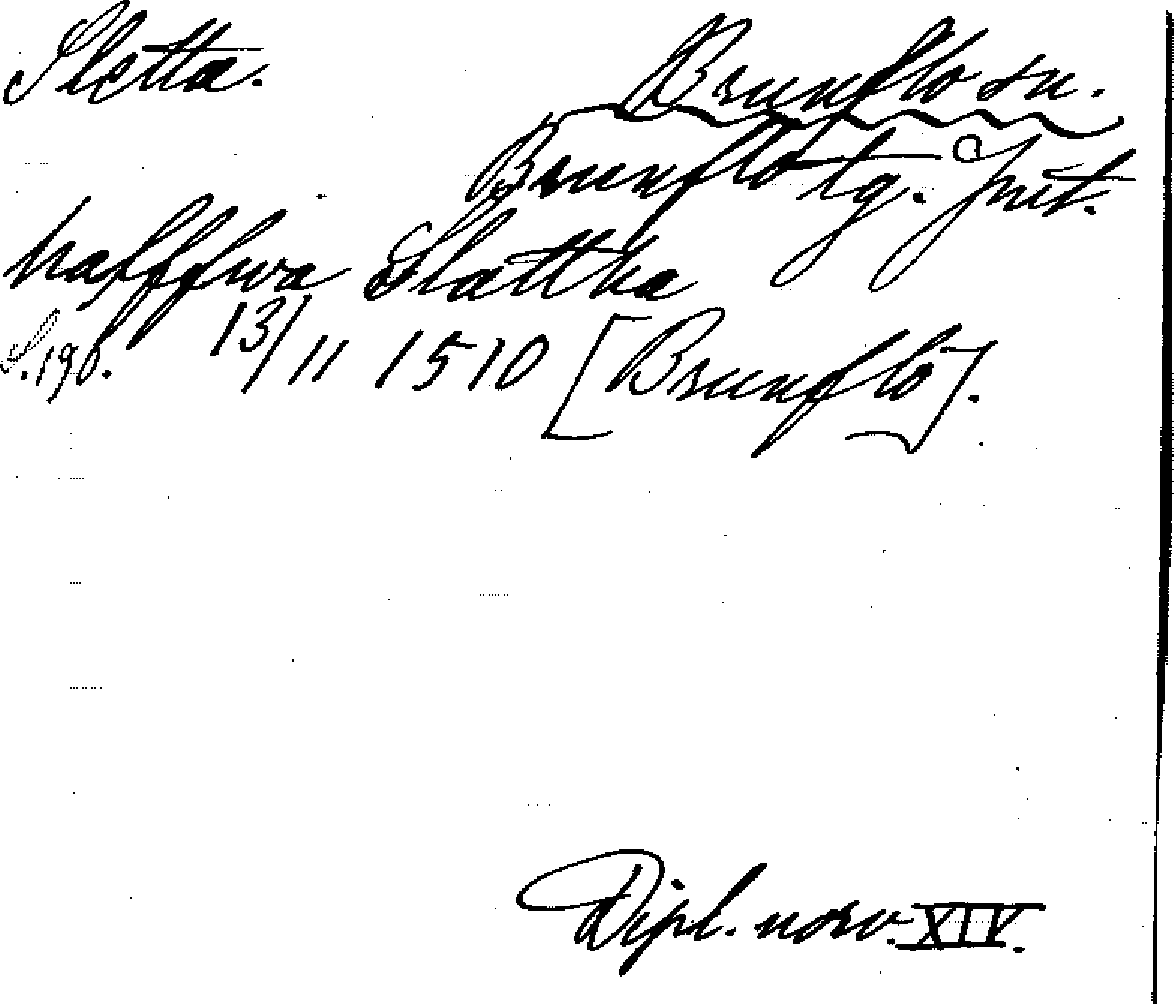 Sletta. Brunflo sn.
Brunflo tg. Jmt.
haffwa Slattha
S. 196. 13/11 1510 [Brunflo].
Dipl. norv. XIV.